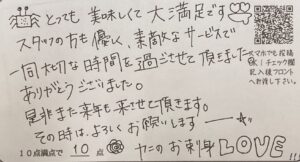 とっても美味しくて大満足です
スタッフの方も優しく、素敵なサービスで
一同大切な時間を過ごさせて頂きました
ありがとうございました。
是非また来年も来させて頂きます。
その時は、よろしくお願いします
10点満点で 10 点 カニのお刺身LOVE
スマホでも投稿
OK(チェック欄
記入後フロント
へお渡し下さい)